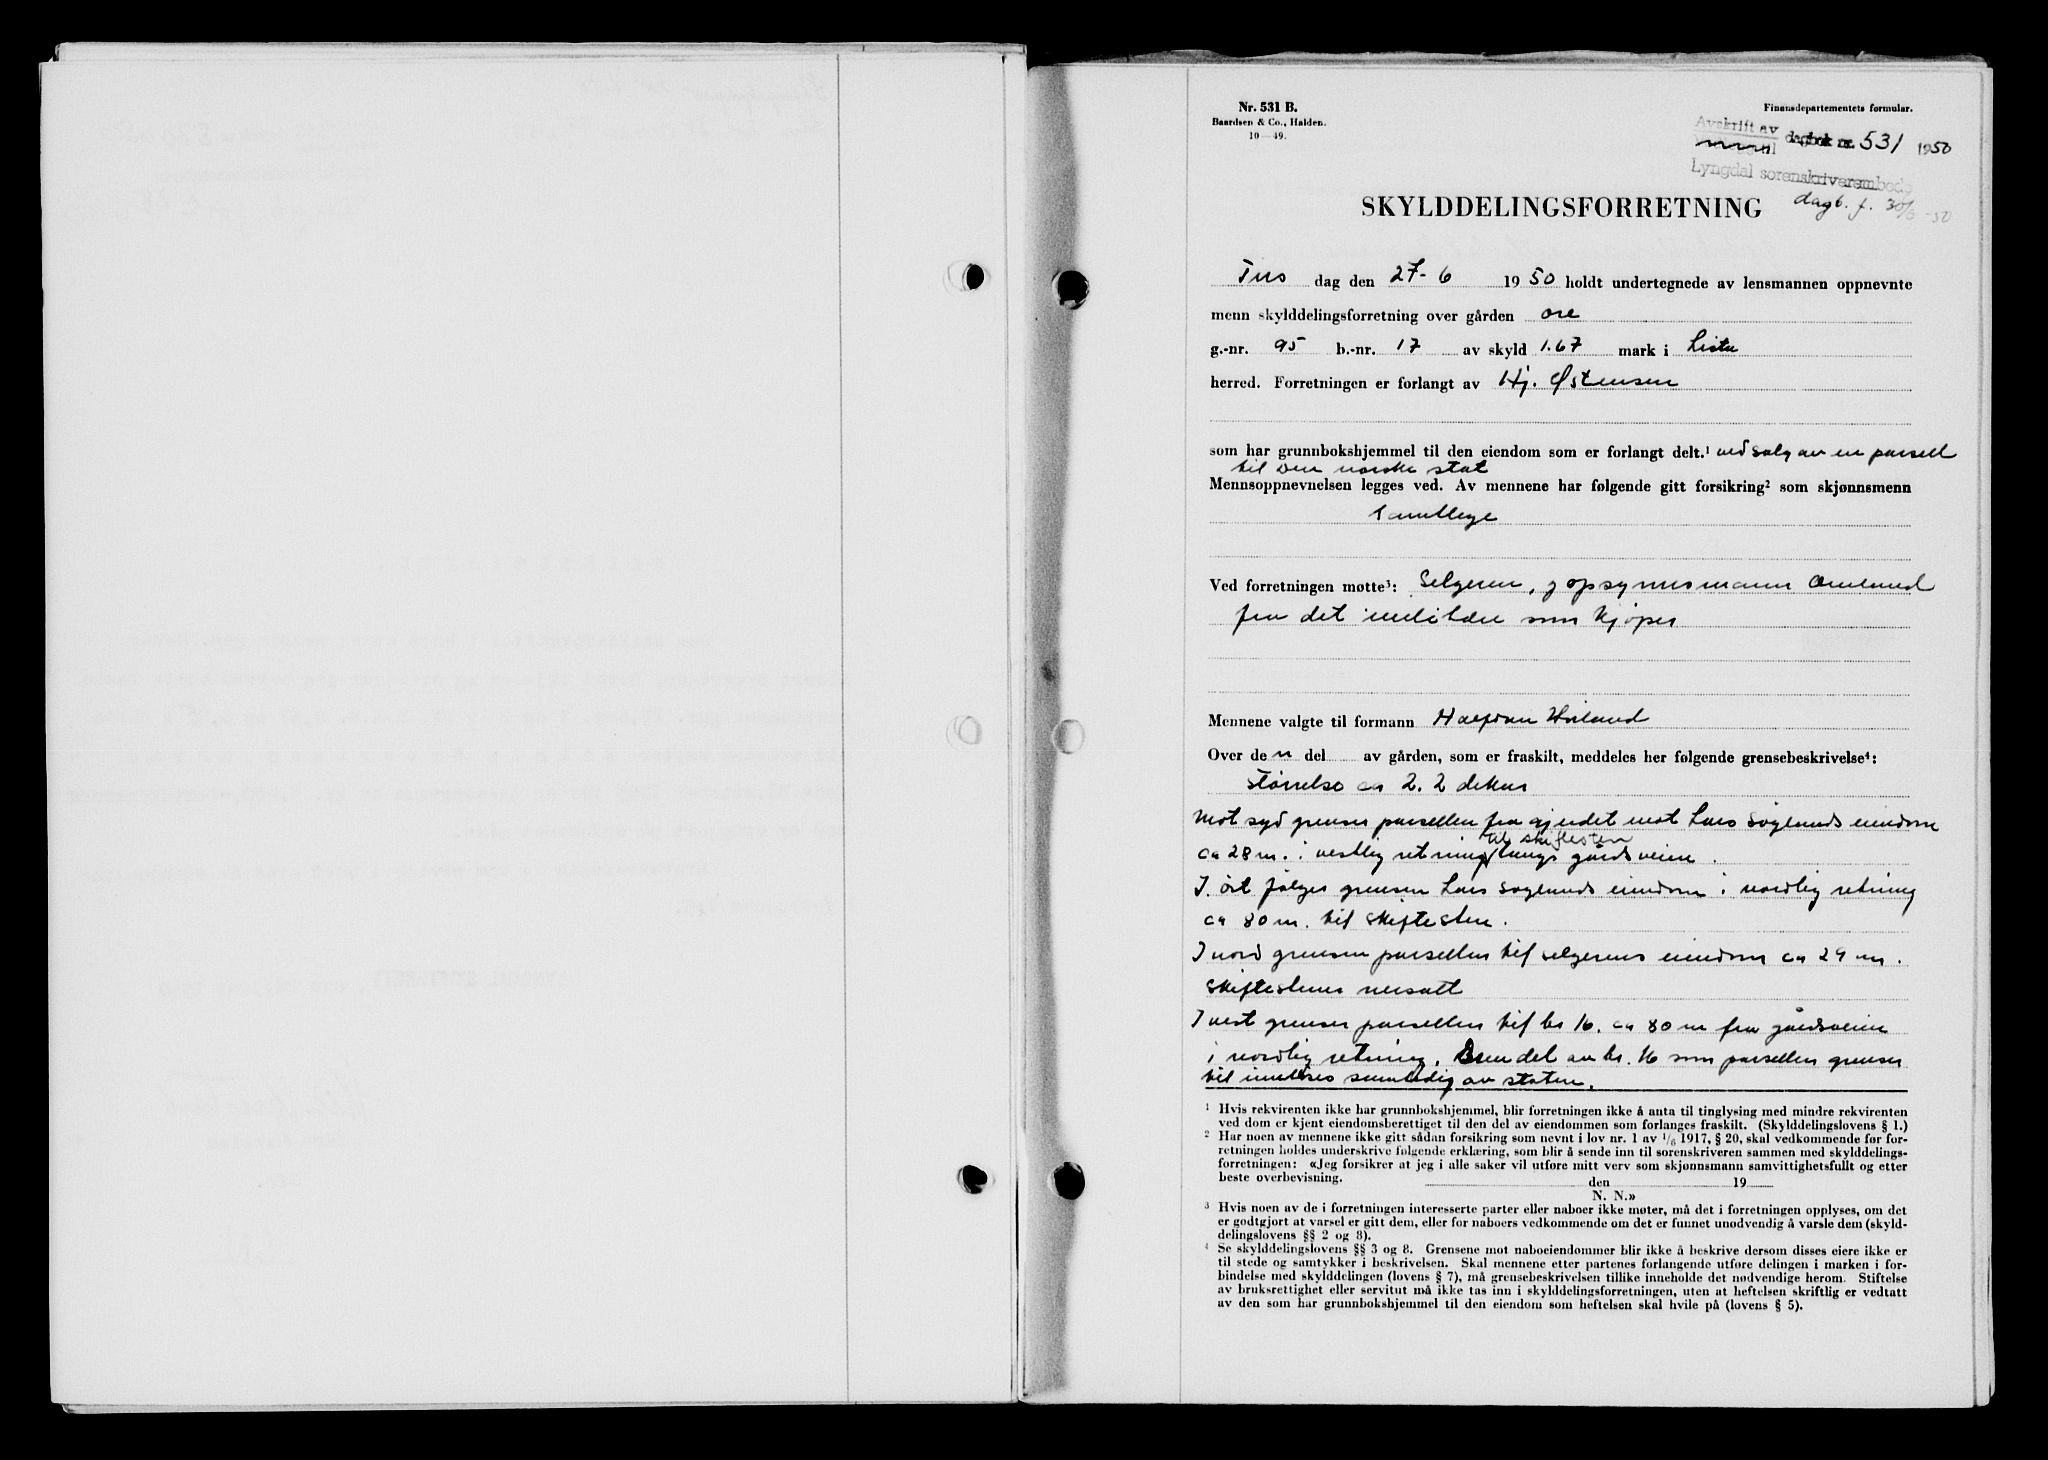 Nr. 531 B.
Baardsen & Co., Halden.
10 — 49.
Finansdepartementets formular.
Avskrift av dagbok nr. 531 1950
Lyngdal sorenskriverembede
dagb. f. 30/6 -50
SKYLDDELINGSFORRETNING
Tirs dag den 27-6 1950 holdt undertegnede av lensmannen oppnevnte
menn skylddelingsforretning over gården Ore
g.-nr. 95 b.-nr. 17 av skyld 1.67 mark i Lista
herred. Forretningen er forlangt av Hj. Østensen
som har grunnbokshjemmel til den eiendom som er forlangt delt.¹ ved salg av en parsell
til Den norske stat
Mennsoppnevnelsen legges ved. Av mennene har følgende gitt forsikring² som skjønnsmenn
samtlege
Ved forretningen møtte³: Selgeren, og opsynsmann Omland
fra det militære som kjøper
Mennene valgte til formann Halfdan Høiland
Over den del av gården, som er fraskilt, meddeles her følgende grensebeskrivelse⁴:
Størrelse ca 2.2 dekar
Mot syd grenser parsellen fra gjerdet mot Lars Søglunds eiendom
til skiftesten
ca 28 m. i vestlig retning langs gårdsveien.
I øst følger grensen Lars Søglunds eiendom i nordlig retning
ca 80 m. til skiftesten.
I nord grenser parsellen til selgerens eiendom ca 29 m.
Skiftestener nersatt
I vest grenser parsellen til br 16. ca 80 m fra gårdsveien
i nordlig retning. Den del av br. 16 som parsellen grenser
til innløses samtidig av staten.
¹ Hvis rekvirenten ikke har grunnbokshjemmel, blir forretningen ikke å anta til tinglysing med mindre rekvirenten
ved dom er kjent eiendomsberettiget til den del av eiendommen som forlanges fraskilt. (Skylddelingslovens § 1.)
² Har noen av mennene ikke gitt sådan forsikring som nevnt i lov nr. 1 av 1/6 1917, § 20, skal vedkommende før for-
retningen holdes underskrive følgende erklæring, som blir å sende inn til sorenskriveren sammen med skylddelings-
forretningen: «Jeg forsikrer at jeg i alle saker vil utføre mitt verv som skjønnsmann samvittighetsfullt og etter
beste overbevisning. den 19
N. N.»
³ Hvis noen av de i forretningen interesserte parter eller naboer ikke møter, må det i forretningen opplyses, om det
er godtgjort at varsel er gitt dem, eller for naboers vedkommende om det er funnet unødvendig å varsle dem (skyld-
delingslovens §§ 2 og 8).
⁴ Se skylddelingslovens §§ 3 og 8. Grensene mot naboeiendommer blir ikke å beskrive dersom disses eiere ikke er
til stede og samtykker i beskrivelsen. Skal mennene etter partenes forlangende utføre delingen i marken i for-
bindelse med skylddelingen (lovens § 7), må grensebeskrivelsen tillike inneholde det nødvendige herom. Stiftelse
av bruksrettighet eller servitut må ikke tas inn i skylddelingsforretningen, uten at heftelsen skriftlig er vedtatt
av den som har grunnbokshjemmel til den eiendom som heftelsen skal hvile på (lovens § 5).